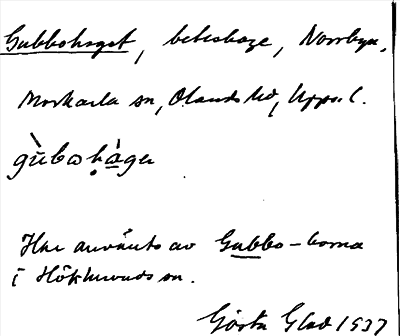 Gubbohaget, beteshage, Norrbyn,
Morkarla sn, Olands hd, Upps. l.
gùbohàge
Har använts av Gubbo-borna
i Hökhuvuds sn.
Gösta Glad 1937